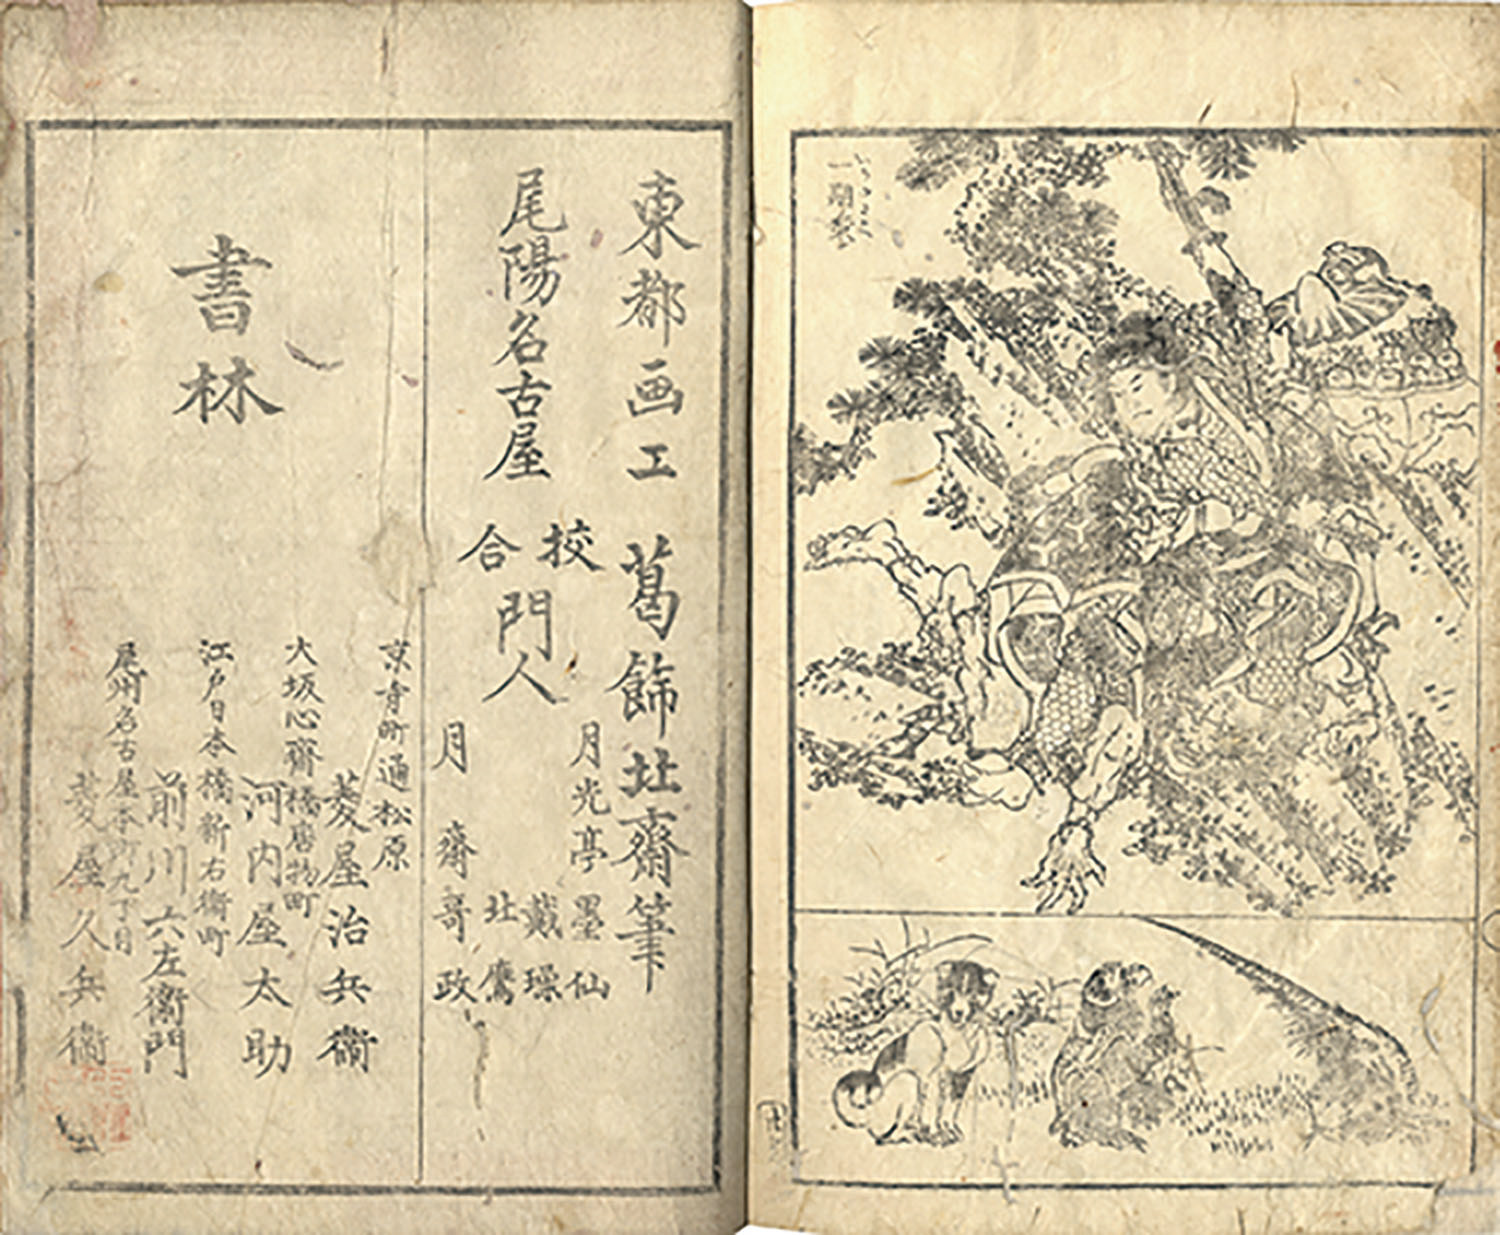 東都画工 葛飾北齋筆
尾陽名古屋
校合
門人
月光亭墨仙
戴璪
北鷹
月齋哥政
書林
京寺町通松原
菱屋治兵衞
大坂心齋橋唐物町
河内屋太助
江戸日本橋新右衛町
前川六左衞門
尾州名古屋本町九丁目
菱屋久兵衞